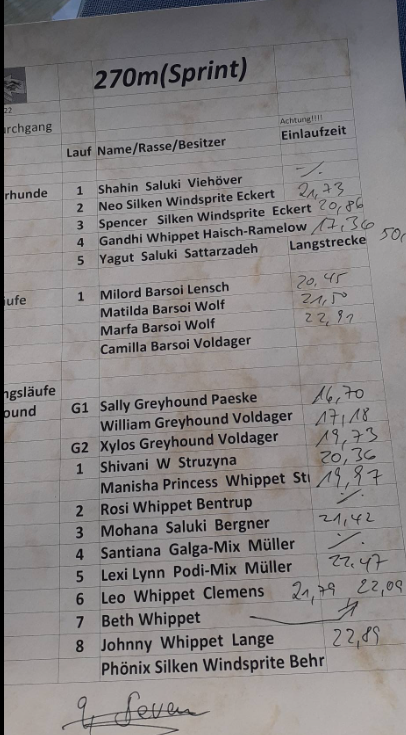 270m(Sprint)
22
rchgang
Achtung!!!!
Lauf Name/Rasse/Besitzer Einlaufzeit
rhunde 1 Shahin Saluki Viehöver ./.
2 Neo Silken Windsprite Eckert 21,73
3 Spencer Silken Windsprite Eckert 20,86
4 Gandhi Whippet Haisch-Ramelow 17,36
5 Yagut Saluki Sattarzadeh Langstrecke 50,
äufe 1 Milord Barsoi Lensch 20,45
Matilda Barsoi Wolf 21,50
Marfa Barsoi Wolf 22,91
Camilla Barsoi Voldager
ngsläufe
ound G1 Sally Greyhound Paeske 16,70
William Greyhound Voldager 17,18
G2 Xylos Greyhound Voldager 19,73
1 Shivani W Struzyna 20,36
Manisha Princess Whippet Sti 19,97
2 Rosi Whippet Bentrup ./.
3 Mohana Saluki Bergner 21,42
4 Santiana Galga-Mix Müller ./.
5 Lexi Lynn Podi-Mix Müller 22,47
6 Leo Whippet Clemens 21,79 22,09
7 Beth Whippet
8 Johnny Whippet Lange 22,89
Phönix Silken Windsprite Behr